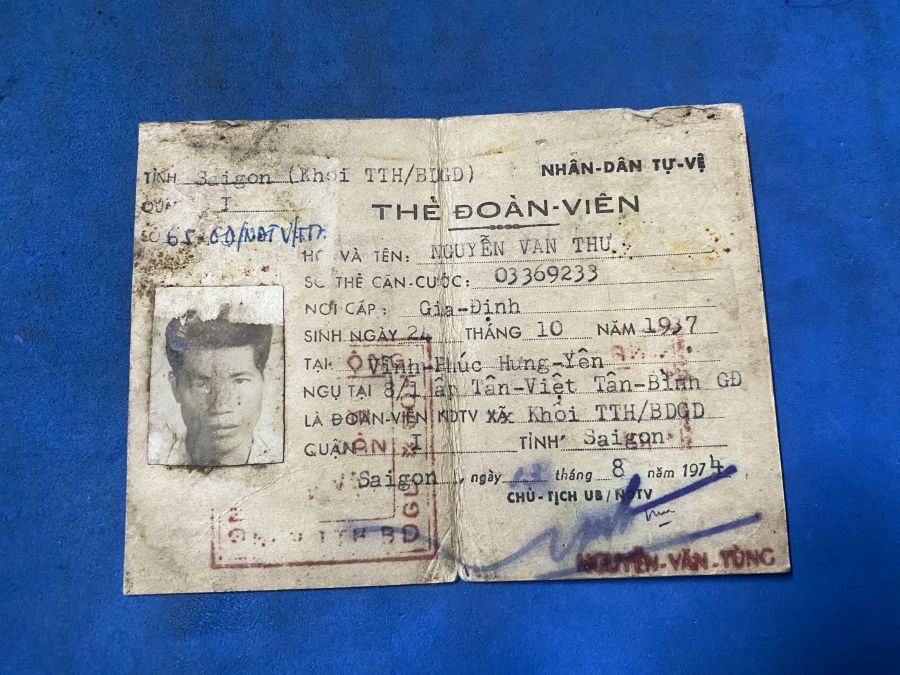 TỈNH Saigon (Khối TTH/BDGD)
QUẬN I
SỐ 65-GD/NDTV/TTH.
NHÂN-DÂN TỰ-VỆ
THẺ ĐOÀN-VIÊN
HỌ VÀ TÊN: NGUYỄN VAN THƯ
SỐ THẺ CĂN-CƯỚC: 03369233
NƠI CẤP: Gia-Định
SINH NGÀY 24 THÁNG 10 NĂM 1937
TẠI Vĩnh-Phúc Hưng-Yên
NGỤ TẠI 8/1 ấp Tân-Việt Tân-Bình GĐ
LÀ ĐOÀN-VIÊN NDTV XÃ Khối TTH/BDGD
QUẬN I TỈNH Saigon
Saigon, ngày tháng 8 năm 1974
CHỦ-TỊCH UB/NDTV
NGUYỄN-VĂN-TÙNG
TTH BD